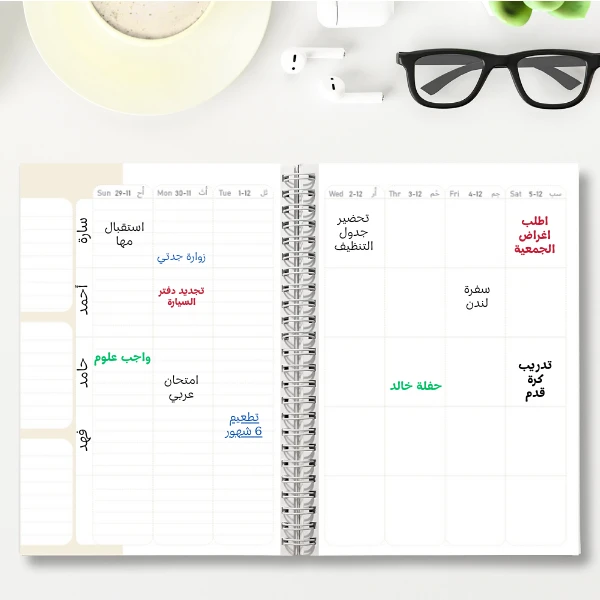 Sun 29-11 أح
Mon 30-11 أث
Tue 1-12 ثل
Wed 2-12 أر
Thr 3-12 خم
Fri 4-12 جم
Sat 5-12 سب
سارة
استقبال
مها
زوارة جدتي
تحضير
جدول
التنظيف
اطلب
اغراض
الجمعية
أحمد
تجديد دفتر
السيارة
سفرة
لندن
حامد
واجب علوم
امتحان
عربي
حفلة خالد
تدريب
كرة
قدم
فهد
تطعيم
6 شهور